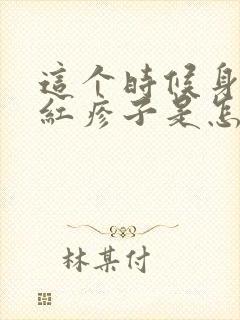 這个時候身
紅疹子是怎
林某付